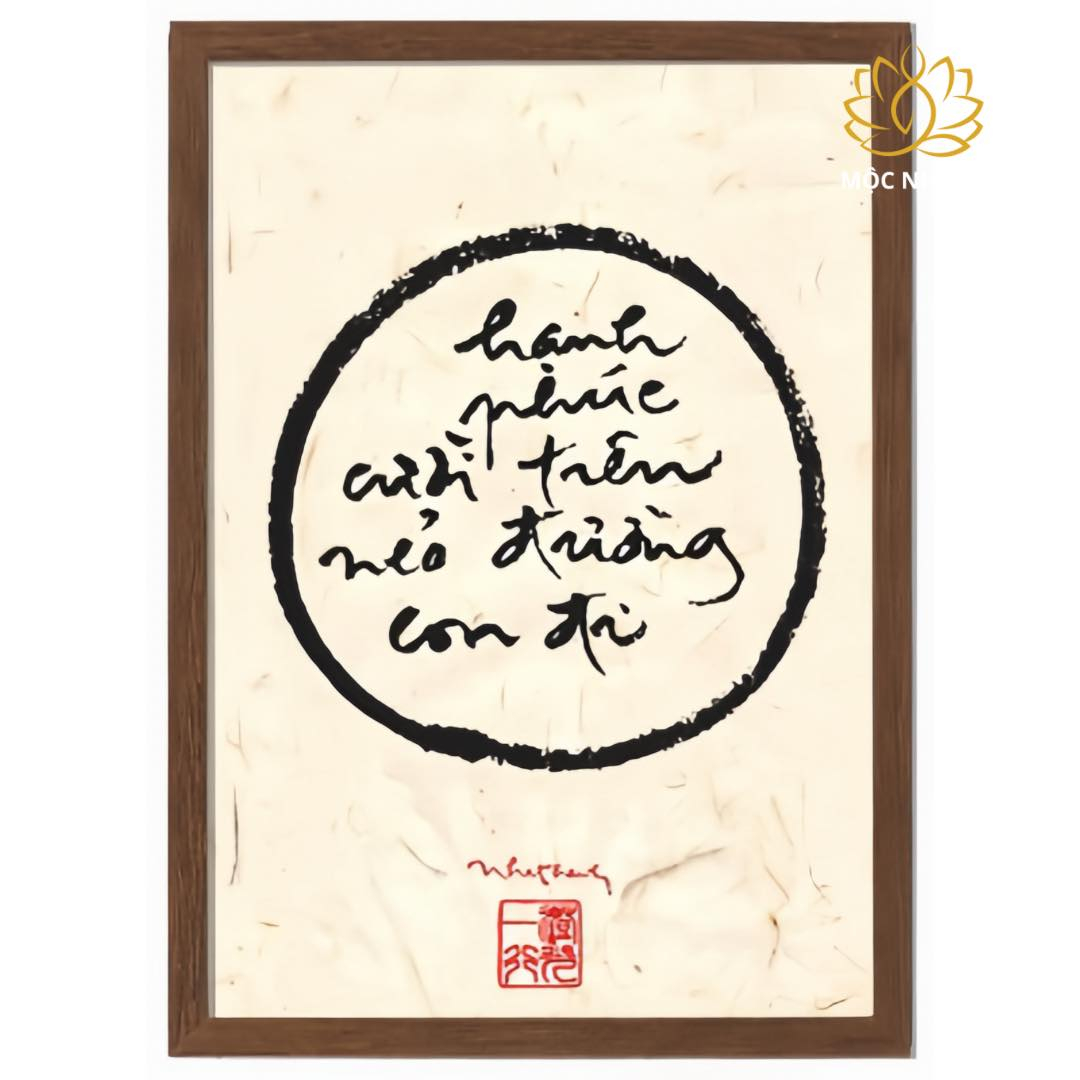 MỘC N
hạnh
phúc
cười trên
nẻo đường
con đi
Nhất Hạnh